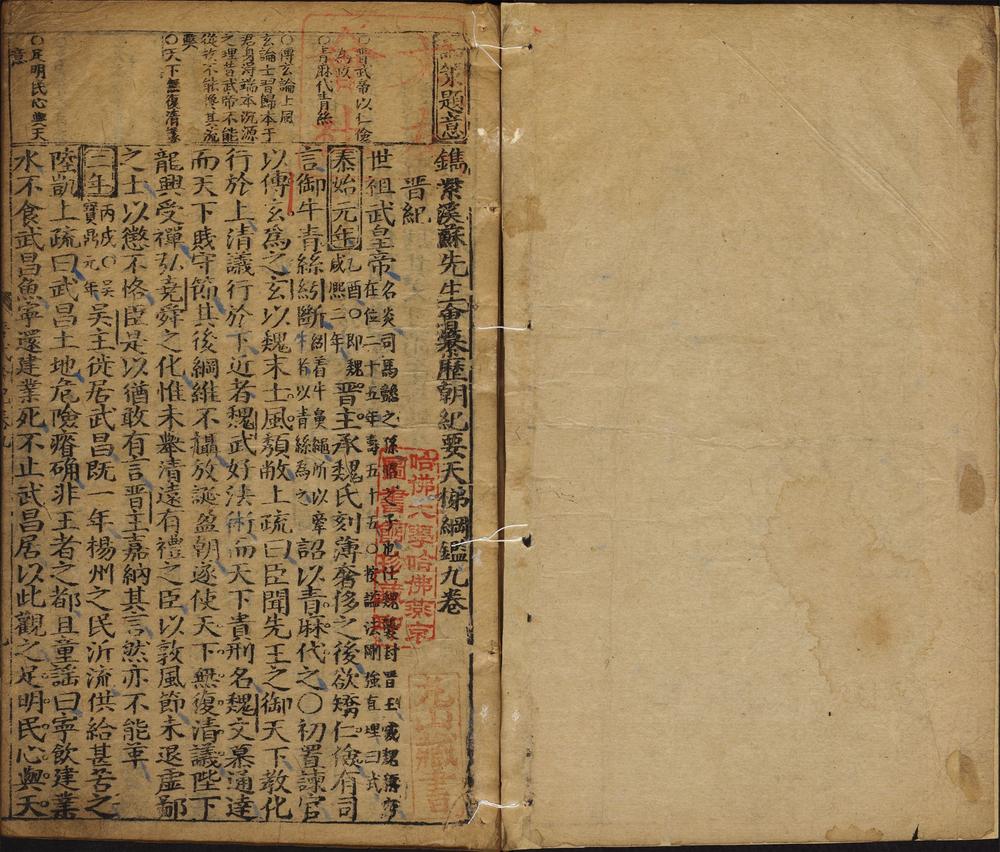 鐫紫溪蘇先生會纂歷朝紀要天梯綱鑑九卷
晋紀
世祖武皇帝名炎司馬懿之孫昭之子也仕魏襲封晋王
在位二十五年壽五十五○按諡法剛強直理曰武
泰始元年乙酉○即魏
咸熙二年晋主承魏氏刻薄奢侈之後欲矯仁儉有司
言御牛青絲紖斷紖着牛鼻繩所以牽
牛者以青絲為之詔以青麻代之○初置諫官
以傅玄爲之玄以魏末士風頹敝上疏曰臣聞先王之御天下教化
行於上清議行於下近者魏武好法術而天下貴刑名魏文慕通達
而天下賤守節其後綱維不攝放誕盈朝遂使天下無復清議陛下
龍興受禪弘堯舜之化惟未舉清遠有禮之臣以敦風節未退虛鄙
之士以懲不恪臣是以猶敢有言晋主嘉納其言然亦不能革
二年丙戌○吳
寶鼎元年吳王徙居武昌既一年楊州之民泝流供給甚苦之
陸凱上疏曰武昌土地危險瘠确非王者之都且童謡曰寧飲建業
水不食武昌魚寧還建業死不止武昌居以此觀之足明民心與天
論策題意
○晋武帝以仁儉
為政
○青麻代青絲
○傅玄論上風
玄論士習歸本于
君身得端本沉源
之理昔武帝不能
從故不能革其流
弊
○天下無復清議
○足明民心與天
意
哈佛大學哈佛燕京
圖書館珍藏印
花山藏書